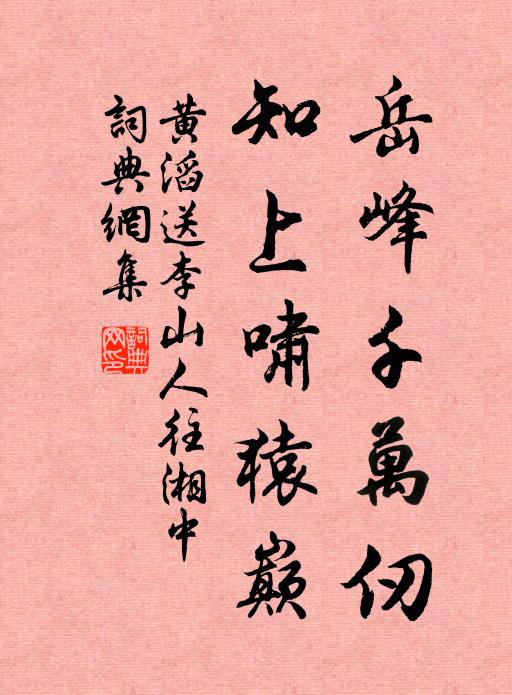 岳峰千萬仞
知上嘯猿巔
黄滔送李山人往湘中
詞典網集
詞典
网印